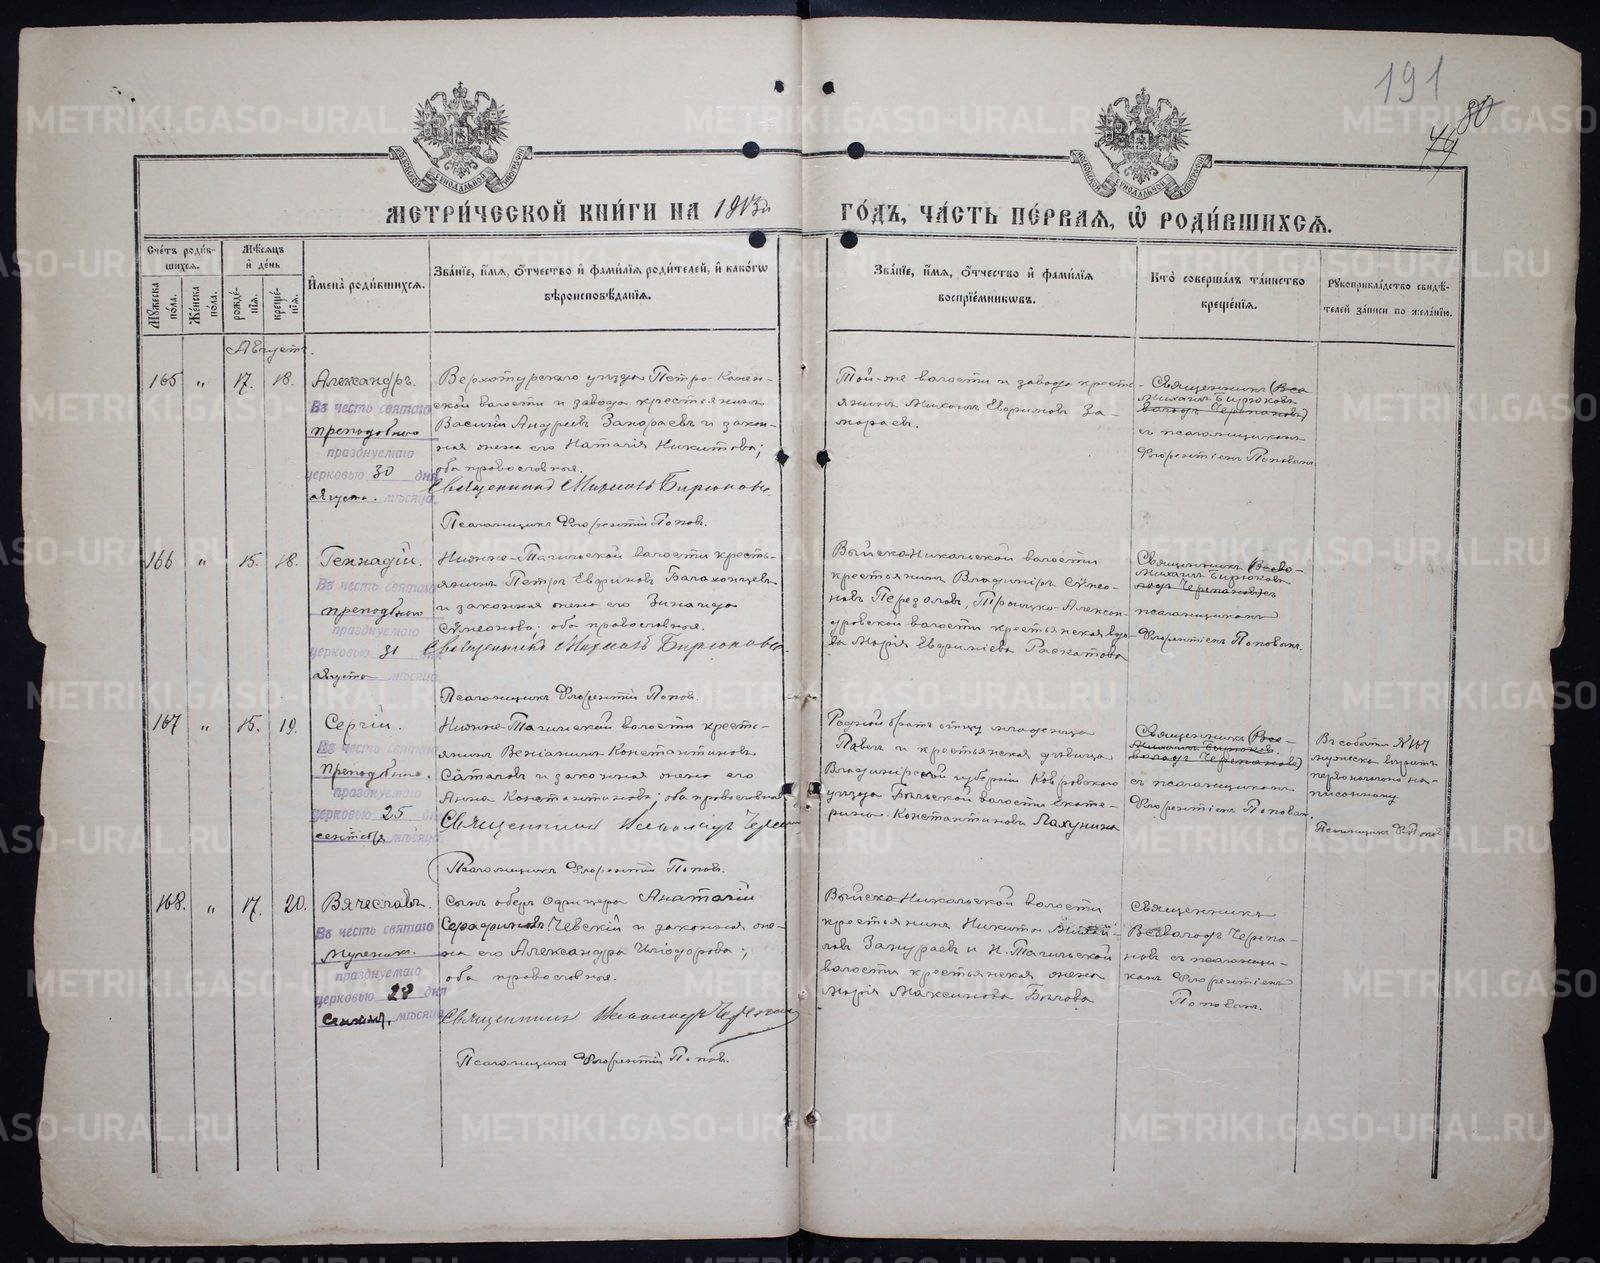 191
80
МЕТРИ́ЧЕСКОЙ КНИ́ГИ НА 1913й ГО́ДЪ, ЧА́СТЬ ПЕ́РВАЯ, Ѡ РОДИ́ВШИХСЯ.
Сче́тъ роди́в-
шихся.
Му́жеска по́ла.
Же́нска по́ла.
Мѣ́сяцъ и де́нь
рожде́-
нія.
креще́-
нія.
Имена̀ роди́вшихся.
Зва́ніе, и́мя, о́тчество и фами́лія роди́телей, и како́гѡ
вѣроисповѣ́данія.
Зва́ніе, и́мя, о́тчество и фами́лія
воспріе́мникѡвъ.
Кто̀ соверша́лъ та́инство
креще́нія.
Рукоприкла́дство свидѣ́-
телей за́писи по жела́нію.
Августъ.
165 " 17. 18. Александръ.
Въ честь святаго
преподобнаго
празднуемаго
церковью 30 дня
августа. мѣсяца.
Верхотурскаго уѣзда Петро-Камен-
ской волости и завода крестьянинъ
Василій Андреевъ Замораевъ и закон-
ная жена его Наталія Никитова;
оба православные.
Священникъ Михаилъ Бирюковъ.
Псаломщикъ Флорентій Поповъ.
Той-же волости и завода кресть-
янинъ Михаилъ Евфимовъ За-
мораевъ.
Священникъ (Все-
Михаилъ Бирюковъ
володъ Черепановъ)
съ псаломщикомъ
Флорентіемъ Поповымъ
166 " 15. 18. Геннадій.
Въ честь святаго
преподобнаго
празднуемаго
церковью 31 дня
августа мѣсяца.
Нижне-Тагильской волости кресть-
янинъ Петръ Евфимовъ Балаконцевъ
и законная жена его Зинаида
Сѵмеонова; оба православные.
Священникъ Михаилъ Бирюковъ.
Псаломщикъ Флорентій Поповъ.
Выйско-Никольской волости
крестьянинъ Владиміръ Сѵмео-
новъ Перезоловъ, Троицко-Алексан-
дровской волости крестьянская вдо-
ва Марія Евфиміева Раскатова
Священникъ (Всево-
Михаилъ Бирюковъ
лодъ Черепановъ) съ
псаломщикомъ
Флорентіемъ Поповымъ.
167 " 15. 19. Сергій.
Въ честь святаго
преподобнаго.
празднуемаго
церковью 25 дня
сентября мѣсяца.
Нижне-Тагильской волости кресть-
янинъ Веніаминъ Константиновъ
и законная жена его
Анна Константинова; оба православные
Священникъ Всеволодъ Черепан
Псаломщикъ Флорентій Поповъ.
Родной братъ отцу младенца
Павелъ и крестьянская дѣвица
Владимірской губерніи Ковровскаго
уѣзда Бельской волости Екате-
рина Константинова Лахунина
Священникъ (Все-
Михаилъ Бирюковъ.
володъ Черепановъ)
съ псаломщикомъ
Флорентіемъ Поповым.
Въ событіи №167
мужеска вѣрить
первоначально на-
писанному.
Псаломщикъ Ф. Попов
168. " 17. 20. Вячеславъ.
Въ честь святаго
мученик.
празднуемаго
церковью 28 дня
мѣсяца
Сынъ оберъ офицера Анатолій
Серафимовъ Чевскій и законная же-
на его Александра Иліодорова;
оба православные.
Священникъ Всеволодъ Черепан
Псаломщикъ Флорентій Поповъ.
Выйско-Никольской волости
крестьянинъ Никита
Замураевъ и Н.Тагильской
волости крестьянская жена
Марія Максимова Бѣлова
Священникъ
Всеволодъ Черепа-
новъ съ псаломщи-
комъ Флорентіемъ
Поповым.
METRIKI.GASO-URAL.RU